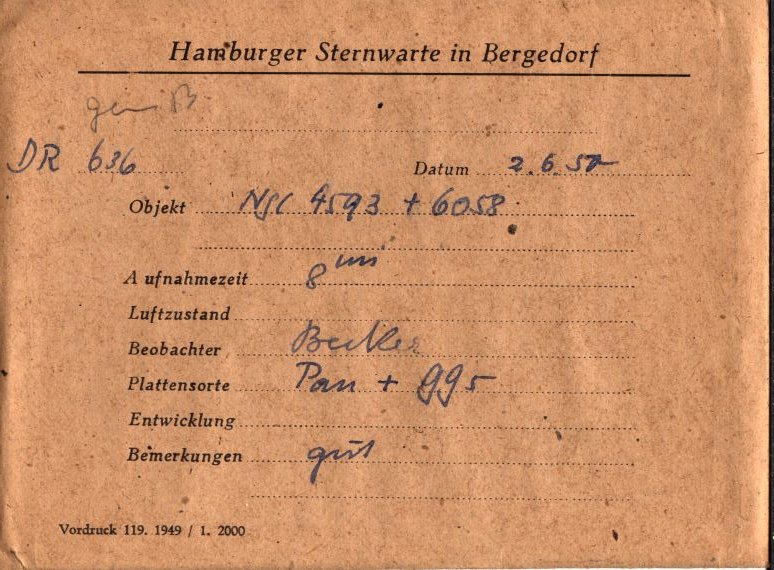 Hamburger Sternwarte in Bergedorf
DR 636
Datum 2.6.57
Objekt NGC 4593 + 6058
Aufnahmezeit 8 min
Luftzustand
Beobachter Becker
Plattensorte Pan + GG5
Entwicklung
Bemerkungen gut
Vordruck 119. 1949 / 1. 2000